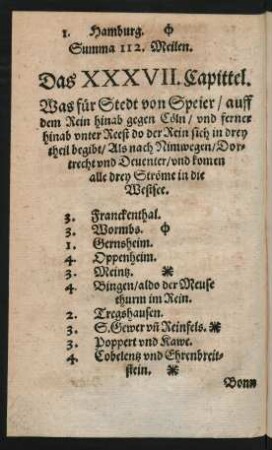 1. Hamburg. ⌽
Summa 112. Meilen.
Das XXXVII. Capittel.
Was für Stedt von Speier / auff
dem Rein hinab gegen Cöln / vnd ferner
hinab vnter Reest do der Rein sich in drey
theil begibt / Als nach Nimwegen / Dor-
trecht vnd Deuenter / vnd komen
alle drey Ströme in die
Westsee.
3. Franckenthal.
3. Wormbs. ⌽
1. Gernsheim.
4. Oppenheim.
3. Meintz. ⁜
4. Bingen / aldo der Meuse
thurm im Rein.
2. Tregshausen.
3. S. Gewer vñ Reinfels. ⁜
3. Poppert vnd Kawe.
4. Cobelentz vnd Ehrenbreit-
stein. ⁜
Bonn